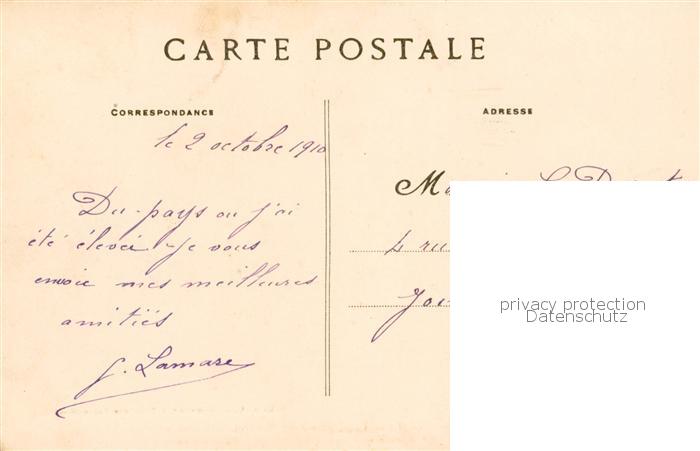 CARTE POSTALE
CORRESPONDANCE
ADRESSE
le 2 octobre 1910
Du pays ou j'ai
été élevée je vous
envoie mes meilleures
amitiés
G. Lamare
4 rue
privacy protection
Datenschutz